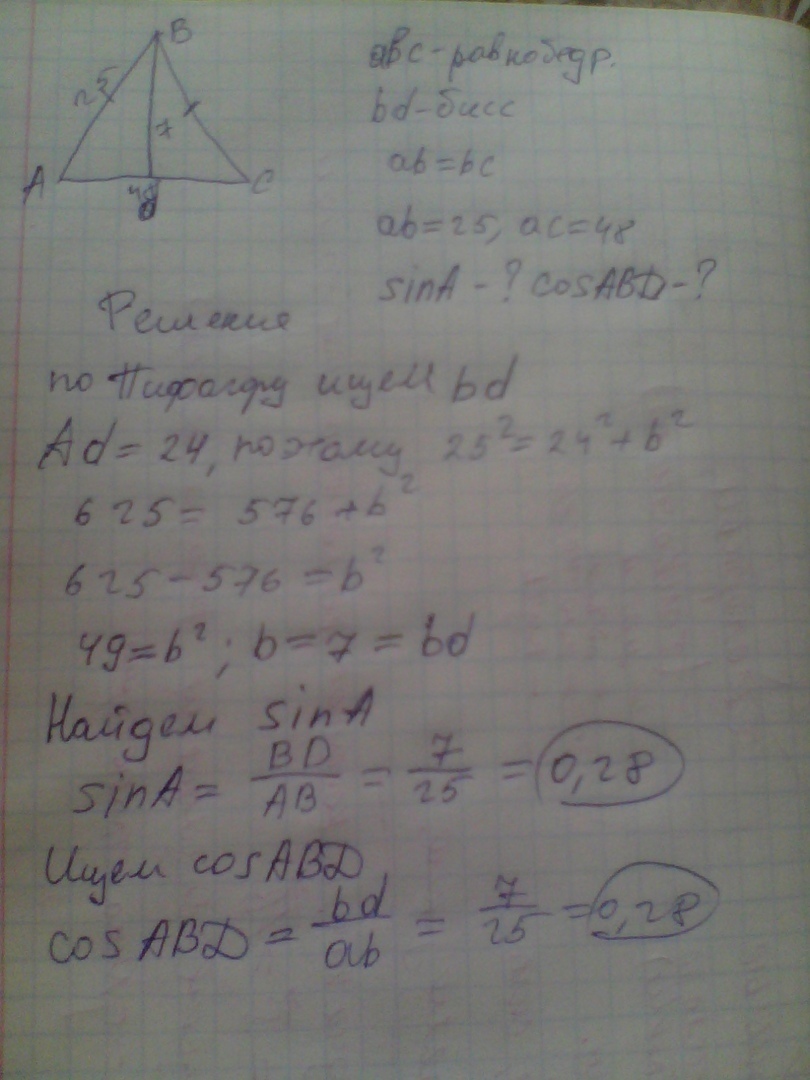 B
25
7
A
48
D
C
aBc - равнобедр.
bd - бисс
ab = bc
ab = 25, ac = 48
sinA - ? cosABD - ?
Решение
по Пифагору ищем bd
Ad = 24, поэтому 25² = 24² + b²
625 = 576 + b²
625 - 576 = b²
49 = b² ; b = 7 = bd
Найдем sinA
sinA = BD/AB = 7/25 = 0,28
Ищем cosABD
cosABD = bd/ab = 7/25 = 0,28